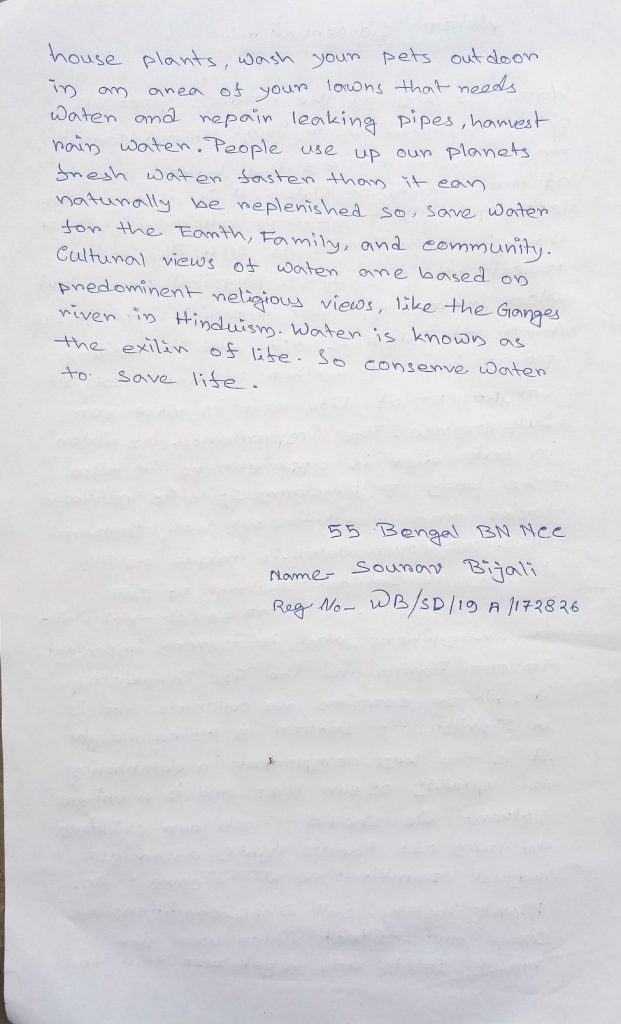 house plants, wash your pets outdoor
in an area of your lawns that needs
water and repair leaking pipes, harvest
rain water. People use up our planets
fresh water faster than it can
naturally be replenished so, save water
for the Earth, Family, and community.
Cultural views of water are based on
predominent religious views, like the Ganges
river in Hinduism. Water is known as
the exilir of life. So conserve water
to save life.
55 Bengal BN NCC
Name- Sourav Bijali
Reg No- WB/SD/19 A/172826